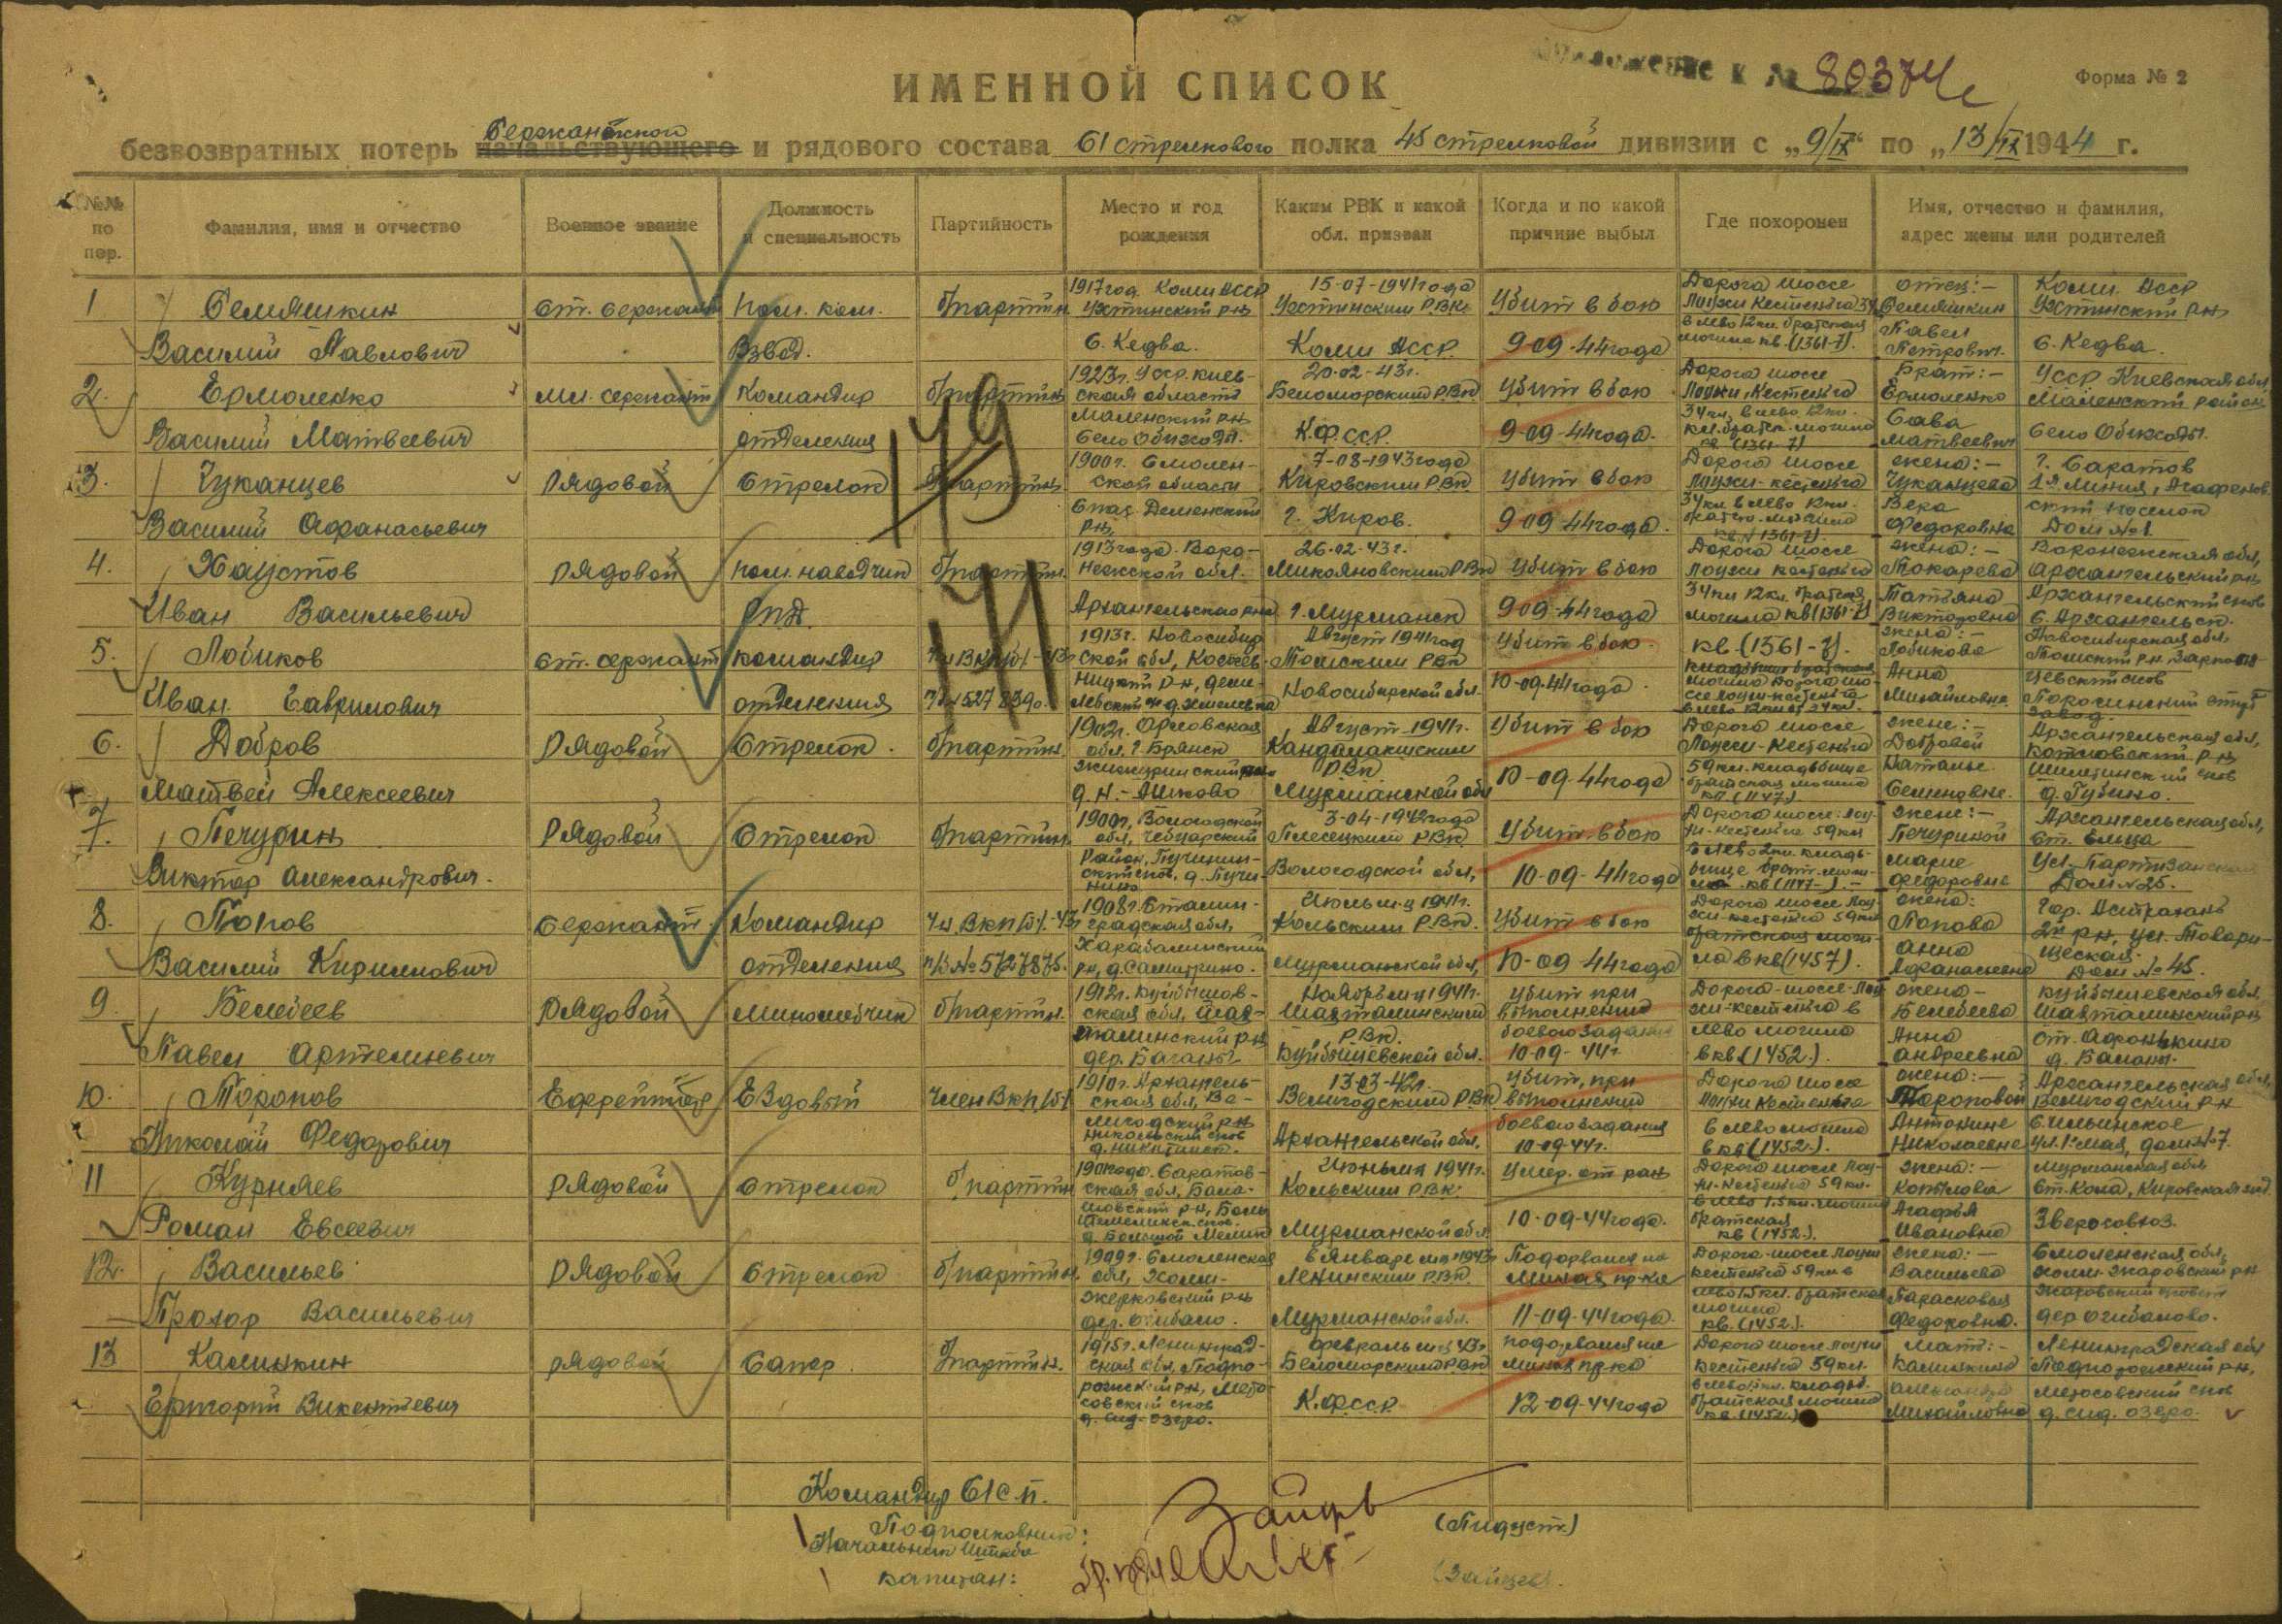 к № 80374с
Форма № 2
ИМЕННОЙ СПИСОК
сержантского
безвозвратных потерь начальствующего и рядового состава 61 стрелкового полка 45 стрелковой дивизии с „9/IX“ по „13/IX 1944 г.
№№ по пор.
Фамилия, имя и отчество
Военное звание
Должность и специальность
Партийность
Место и год рождения
Каким РВК и какой обл. призван
Когда и по какой причине выбыл
Где похоронен
Имя, отчество и фамилия, адрес жены или родителей
179
171
1 Семяшкин Василий Павлович
Ст. сержант
Пом. ком. Взвод.
б/партийн
1917 год. Коми АССР Ухтинский р-н с. Кедва.
15-07-1941 года Ухтинским РВК Коми АССР.
Убит в бою 9-09-44 года
Дорога шоссе Лоухи Кестеньга 34 влево 12 км. братская могила кв (1361-7).
отец:- Семяшкин Павел Петрович.
Коми АССР Ухтинский р-н с. Кедва.
2. Ермоленко Василий Матвеевич
мл. сержант
Командир отделения
б/партийн
1923 г. УССР. Киевская область Маленский р-н село Обиходы.
20-02-43 г. Беломорским РВК К.Ф.ССР.
Убит в бою 9-09-44 года.
Дорога шоссе Лоухи, Кестеньга 34 км, влево 12 км. братск. могила кв (1361-7)
Брат:- Ермоленко Сава Матвеевич
УССР Киевская обл, Маленский район село Обиходы.
3. Чуканцев Василий Афанасьевич
Рядовой
Стрелок
б/партийн
1900 г. Смоленской области Спас-Деменский р-н,
7-08-1943 года Кировским РВК г. Киров.
Убит в бою 9-09-44 года.
Дорога шоссе Лоухи-Кестеньга 34 км влево 12 км. братск. могила кв (1361-7).
жена:- Чуканцева Вера Федоровна
г. Саратов 1я Линия, Агафоновский поселок Дом № 1.
4. Хаустов Иван Васильевич
Рядовой
пом. наводчик
б/партийн.
1913 года. Воронежской обл. Архангельского р-на
26-02-43 г. Микояновским РВК г. Мурманск
Убит в бою 9-09-44 года
Дорога шоссе Лоухи Кестеньга 34 км 12 км. братская могила кв (1361-7)
жена:- Токарева Татьяна Викторовна
Воронежская обл, Архангельский р-н Архангельский с/сов с. Архангельск.
5. Лобиков Иван Гаврилович
Ст. сержант
командир отделения
1913 г. Новосибирской обл,
Август 1941 год Томским РВК Новосибирской обл.
Убит в бою. 10-09-44 года.
кв (1361-7). кладбище братская могила Дорога шоссе Лоухи-Кестеньга влево 12 км от 34 км.
жена:- Лобикова Анна Михайловна.
Новосибирская обл, Томский р-н
6. Добров Матвей Алексеевич
Рядовой
Стрелок.
б/партийн.
1902 г. Орловская обл. г. Брянск
Август 1941 г. Кандалакшским РВК Мурманской обл
Убит в бою 10-09-44 года
Дорога шоссе Лоухи-Кестеньга 59 км. кладбище братская могила кв (1147.)
жене:- Добровой Наталье Семеновне.
Архангельская обл, Котловский р-н с/сов д. Губино.
7. Печурин Виктор Александрович.
Рядовой
Стрелок
б/партийн.
1900 г, Вологодской обл,
3-04-1942 года Плесецким РВК Вологодской обл,
Убит. в бою 10-09-44 года
Дорога шоссе Лоухи-Кестеньга 59 км влево 2 км. кладбище братс. могила кв (1147-).
жене:- Печуриной Марие Федоровне
Архангельская обл, ст. Емца ул. Партизанская Дом № 25.
8. Попов Василий Кириллович
Сержант.
Командир отделения
Чл. ВКП(б)-43г п/б № 5727875.
1908 г. Сталинградская обл, Харабалинский р-н,
Июль м-ц 1941 г. Кольским РВК. Мурманской обл,
Убит в бою 10-09-44 года
Дорога шоссе Лоухи-Кестеньга 59 км братская могила в кв (1457).
жена: Попова Анна Афанасьевна
Гор. Астрахань 2й р-н, ул. Товарищеская Дом № 45.
9. Белебеев Павел Артемьевич
Рядовой
Минометчик
б/партийн.
1912 г. Куйбышевская обл, Шанталинский р-н
Ноябрь м-ц 1941 г. Шанталинским РВК. Куйбышевской обл.
Убит при выполнении боевого задания 10-09-44 г.
Дорога-шоссе-Лоухи-Кестеньга влево могила в кв (1452.).
жена- Белебеева Анна Андреевна
Куйбышевской обл, Шанталинский р-н ст. Афонькино
10. Торопов Николай Федорович
Ефрейтор
Ездовый
Член ВКП(б)
1910 г. Архангельская обл, Вельгодский р-н
13-03-42 г. Вельгодским РВК Архангельской обл.
Убит, при выполнении боевого задания 10-09-44 г.
Дорога шоссе Лоухи Кестеньга влево могила в кв (1452.).
жена:- Тороповой Антонине Николаевне
Архангельская обл, Вельгодский р-н с. Ильинское ул. 1 мая, дом № 7.
11 Курняев Роман Евсеевич
Рядовой
Стрелок
б/партийн
1901 года. Саратовская обл, Баландовский р-н,
Июнь м-ц 1941 г. Кольским РВК. Мурманской обл.
Умер. от ран 10-09-44 года.
Дорога шоссе Лоухи-Кестеньга 59 км. влево 1.5 км. могила братская кв (1452.).
жена:- Копылова Агафья Ивановна
Мурманская обл ст. Кола, Кировская жд. Зверосовхоз.
12. Васильев Прохор Васильевич
Рядовой
Стрелок
б/партийн.
1909 г. Смоленская обл, Холм-Жирковский р-н
в Январе м-ц 1943 г. Ленинским РВК. Мурманской обл.
Подорвался на минах пр-ка 11-09-44 года.
Дорога-шоссе Лоухи Кестеньга 59 км влево 1.5 км. братская могила кв. (1452.).
жена:- Васильева Парасковья Федоровна.
Смоленская обл,
13 Калинкин Григорий Викентьевич
Рядовой
Сапер.
б/партийн.
1915 г. Ленинградская обл, Подпорожский р-н,
Февраль м-ц 43 г. Беломорским РВК К.Ф.ССР.
подорвался на минах пр-ка 12-09-44 года
Дорога шоссе Лоухи Кестеньга 59 км. кладб. братская могила кв. (1452.)
Мать:- Калинкина Михайловна
Ленинградская обл Подпорожский р-н,
Командир 61 с.п.
Подполковник:
(Пидуст.)
Начальник Штаба
капитан:
(Зайцев).